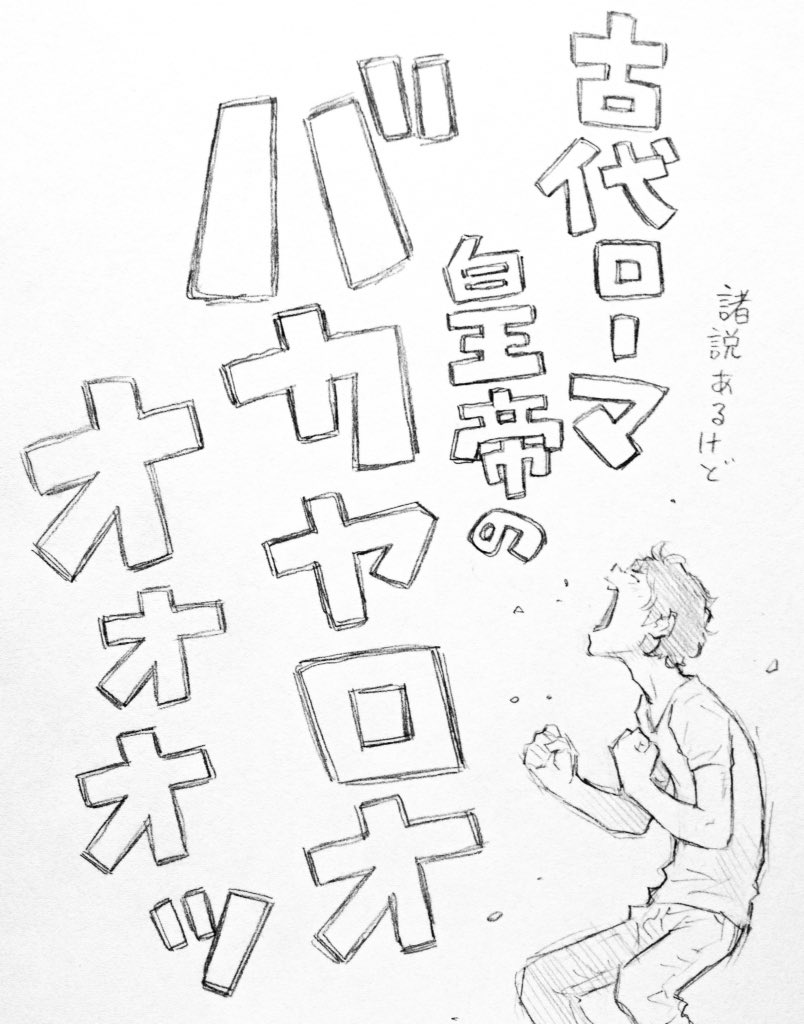 諸説あるけど
古代ローマ
皇帝の
バカヤロオ
オォオッ